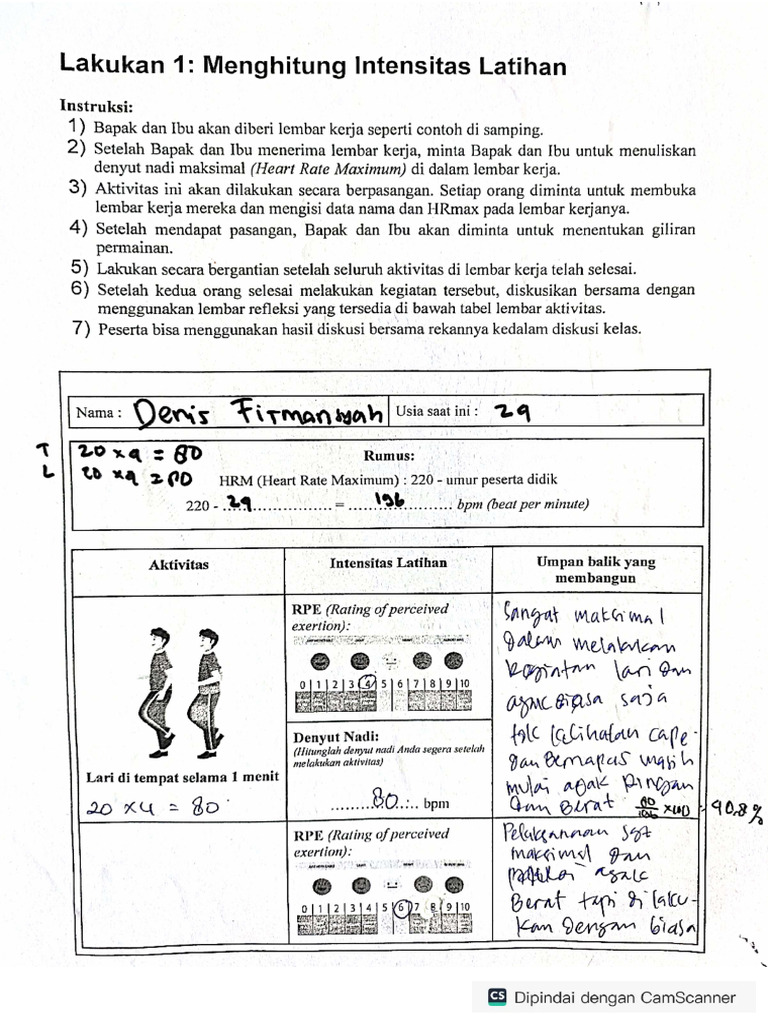 Lakukan 1: Menghitung Intensitas Latihan
Instruksi:
1) Bapak dan Ibu akan diberi lembar kerja seperti contoh di samping.
2) Setelah Bapak dan Ibu menerima lembar kerja, minta Bapak dan Ibu untuk menuliskan
denyut nadi maksimal (Heart Rate Maximum) di dalam lembar kerja.
3) Aktivitas ini akan dilakukan secara berpasangan. Setiap orang diminta untuk membuka
lembar kerja mereka dan mengisi data nama dan HRmax pada lembar kerjanya.
4) Setelah mendapat pasangan, Bapak dan Ibu akan diminta untuk menentukan giliran
permainan.
5) Lakukan secara bergantian setelah seluruh aktivitas di lembar kerja telah selesai.
6) Setelah kedua orang selesai melakukan kegiatan tersebut, diskusikan bersama dengan
menggunakan lembar refleksi yang tersedia di bawah tabel lembar aktivitas.
7) Peserta bisa menggunakan hasil diskusi bersama rekannya kedalam diskusi kelas.
Nama : Denis Firmansyah Usia saat ini : 29
T 20 x 4 = 80
L 20 x 4 = 80
Rumus:
HRM (Heart Rate Maximum) : 220 - umur peserta didik
220 - 29 = 196 bpm (beat per minute)
Aktivitas
Intensitas Latihan
Umpan balik yang
membangun
RPE (Rating of perceived
exertion):
0 1 2 3 4 5 6 7 8 9 10
Denyut Nadi:
(Hitunglah denyut nadi Anda segera setelah
melakukan aktivitas)
80 bpm
Lari di tempat selama 1 menit
20 x 4 = 80
Sangat maksimal
dalam melakukan
kegiatan lari dan
agak biasa saja
tak kelihatan cape
dan Bernapas masih
mulai agak Ringan
dan Berat 80/196 x 100 = 40.8%
RPE (Rating of perceived
exertion):
0 1 2 3 4 5 6 7 8 9 10
Pelaksanaan sgt
maksimal dan
agak
Berat tapi di laku-
kan dengan biasa
CS Dipindai dengan CamScanner